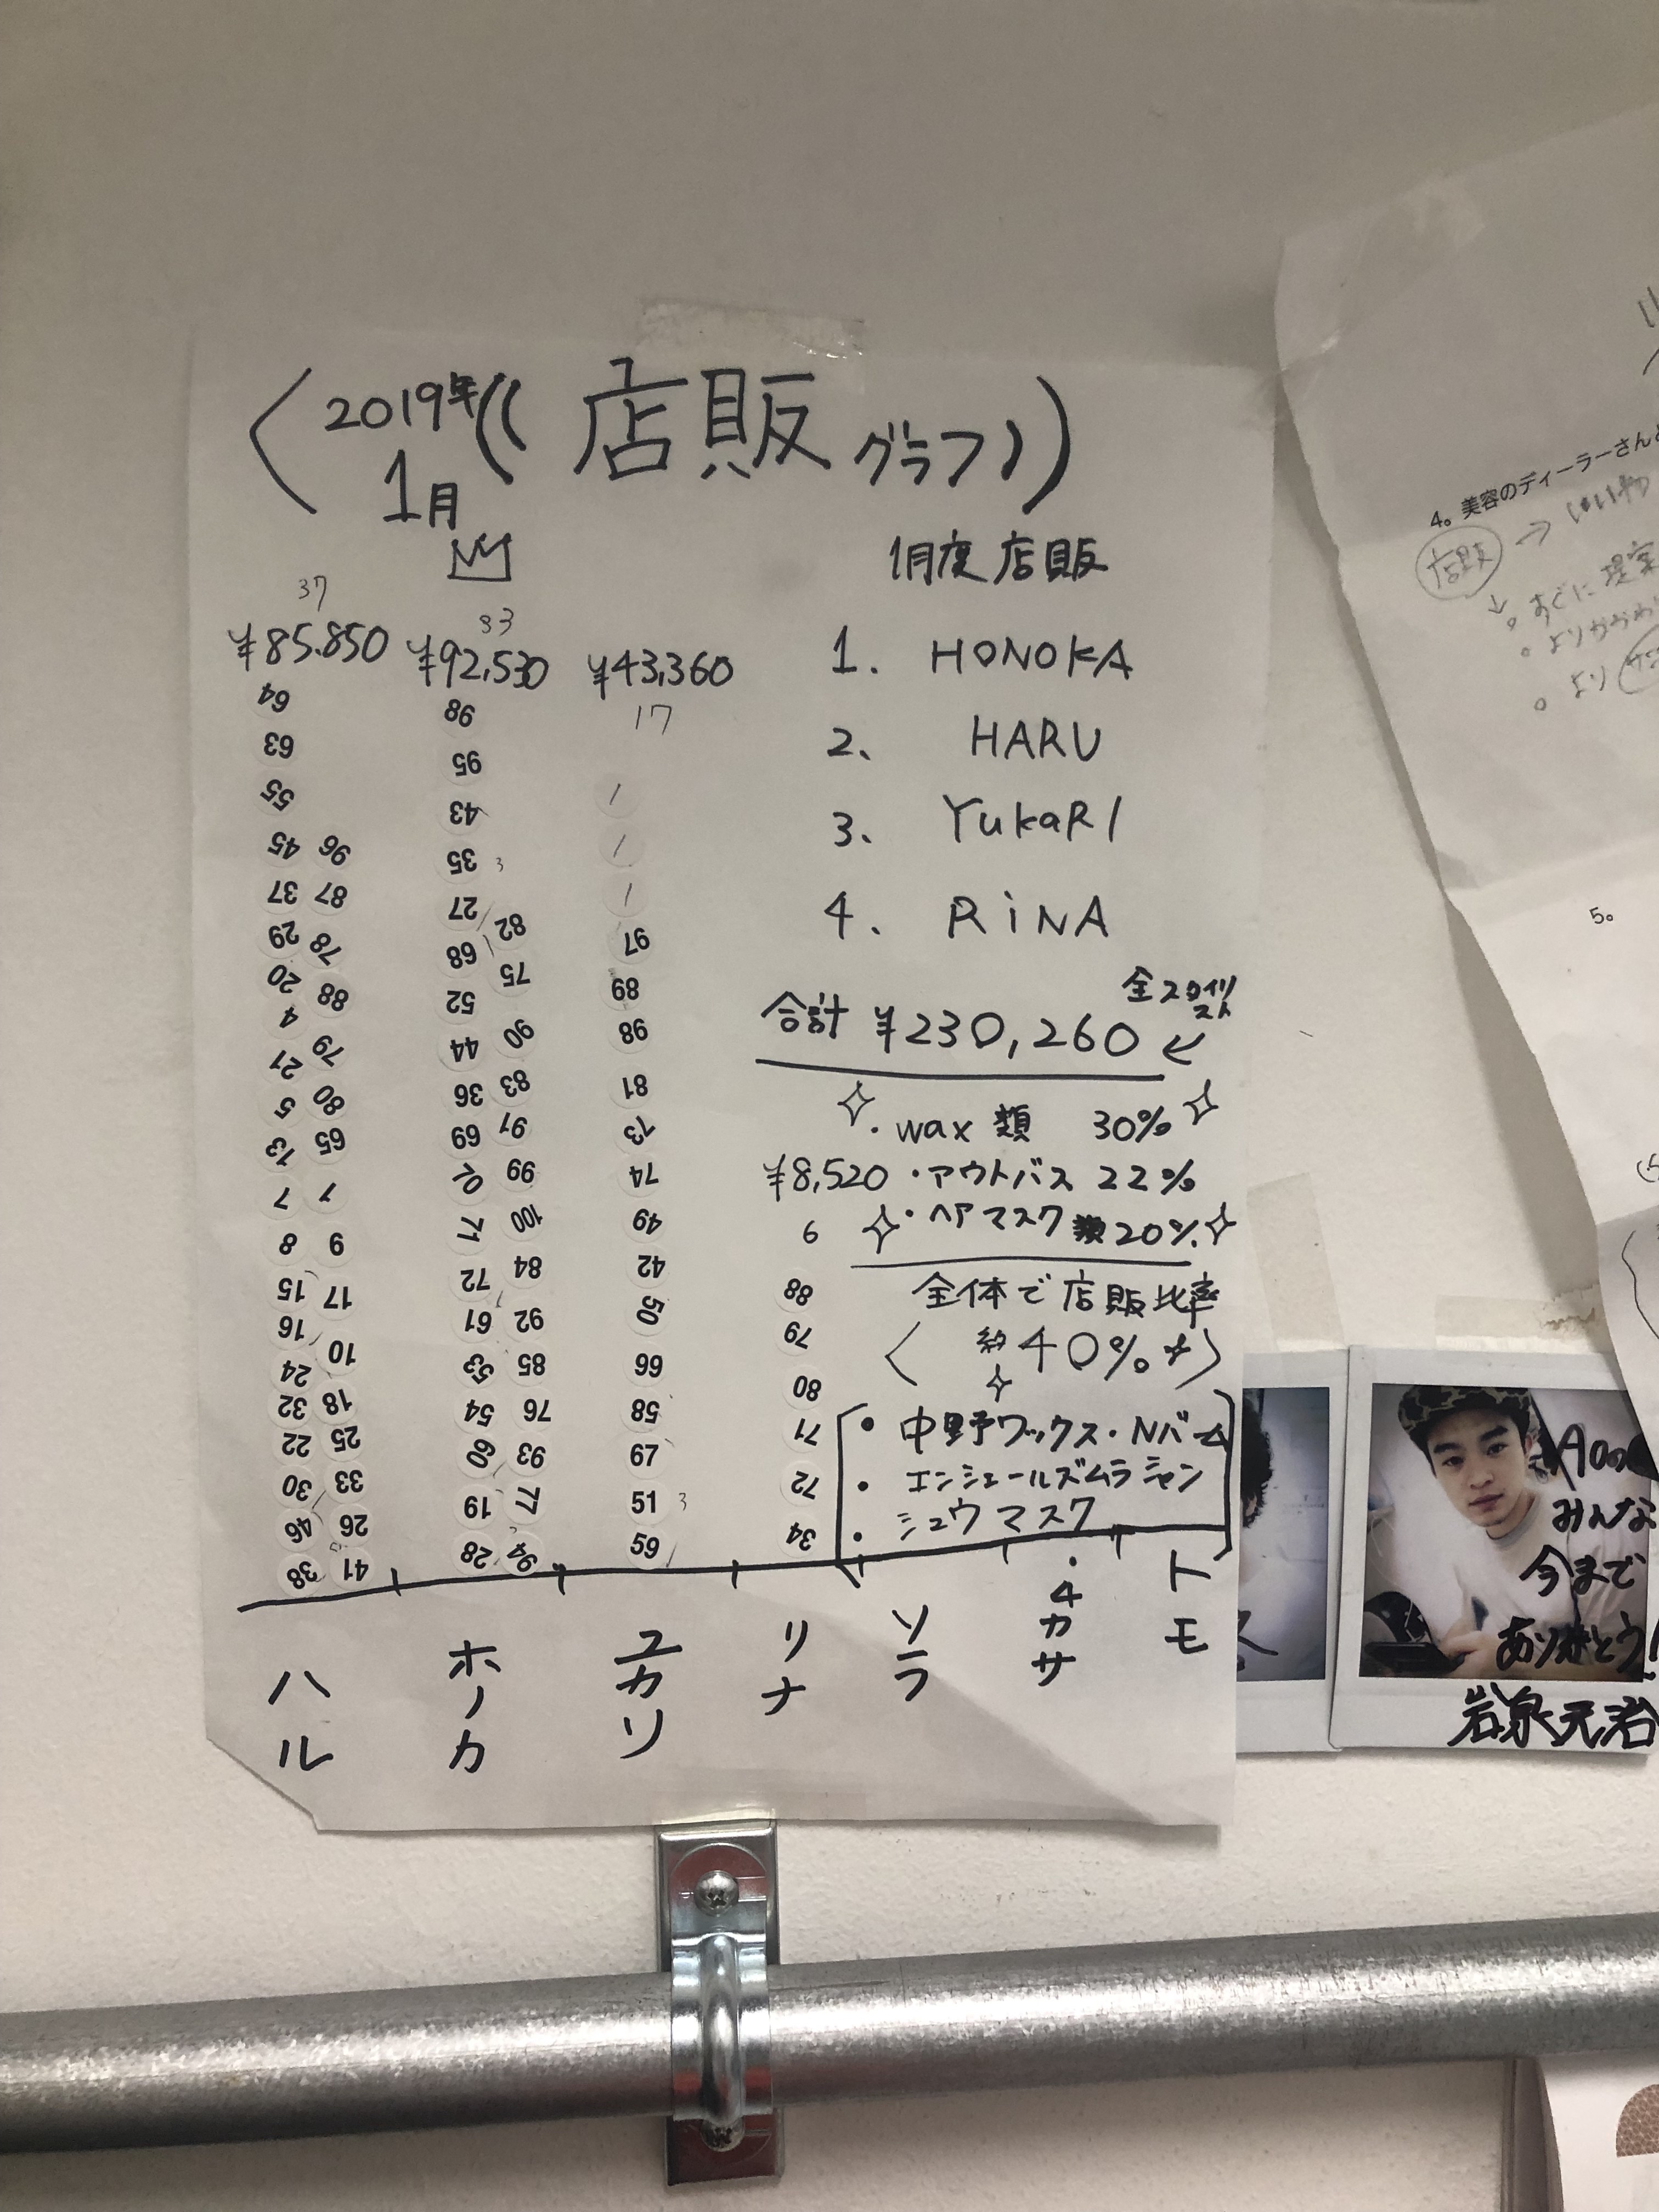 2019年
1月
店販グラフ
1月度店販
37
¥85,850
33
¥92,530
¥43,360
17
1. HONOKA
2. HARU
3. YukaRI
4. RiNA
合計 ¥230,260
・wax類 30%
¥8,520
・アウトバス 22%
6
・ヘアマスク類20%
全体で店販比率
約40%
・中野ワックス・Nバーム
・エンシェールズムラシャン
・シュウマスク
64
63
55
45 96
37 87
29 78
20 88
4 79
21 80
5 65
13 1
7 9
8 17
15 10
16 18
24 25
32 33
22 26
30 41
46
38
98
95
43
35 3
27 82
68 75
52 90
44 83
36 91
69 99
71 100
72 84
61 92
53 85
54 76
60 93
19 77
28
1
1
1
97
89
98
81
73
74
49
42
50
66
58
51 3
88
79
80
71
72
34
ハル
ホノカ
ユカリ
リナ
ソラ
トモ
4。美容のディーラーさんと
店販 → いいや
↓
。すぐに提案
。より
5。
みんな
今まで
ありがとう!